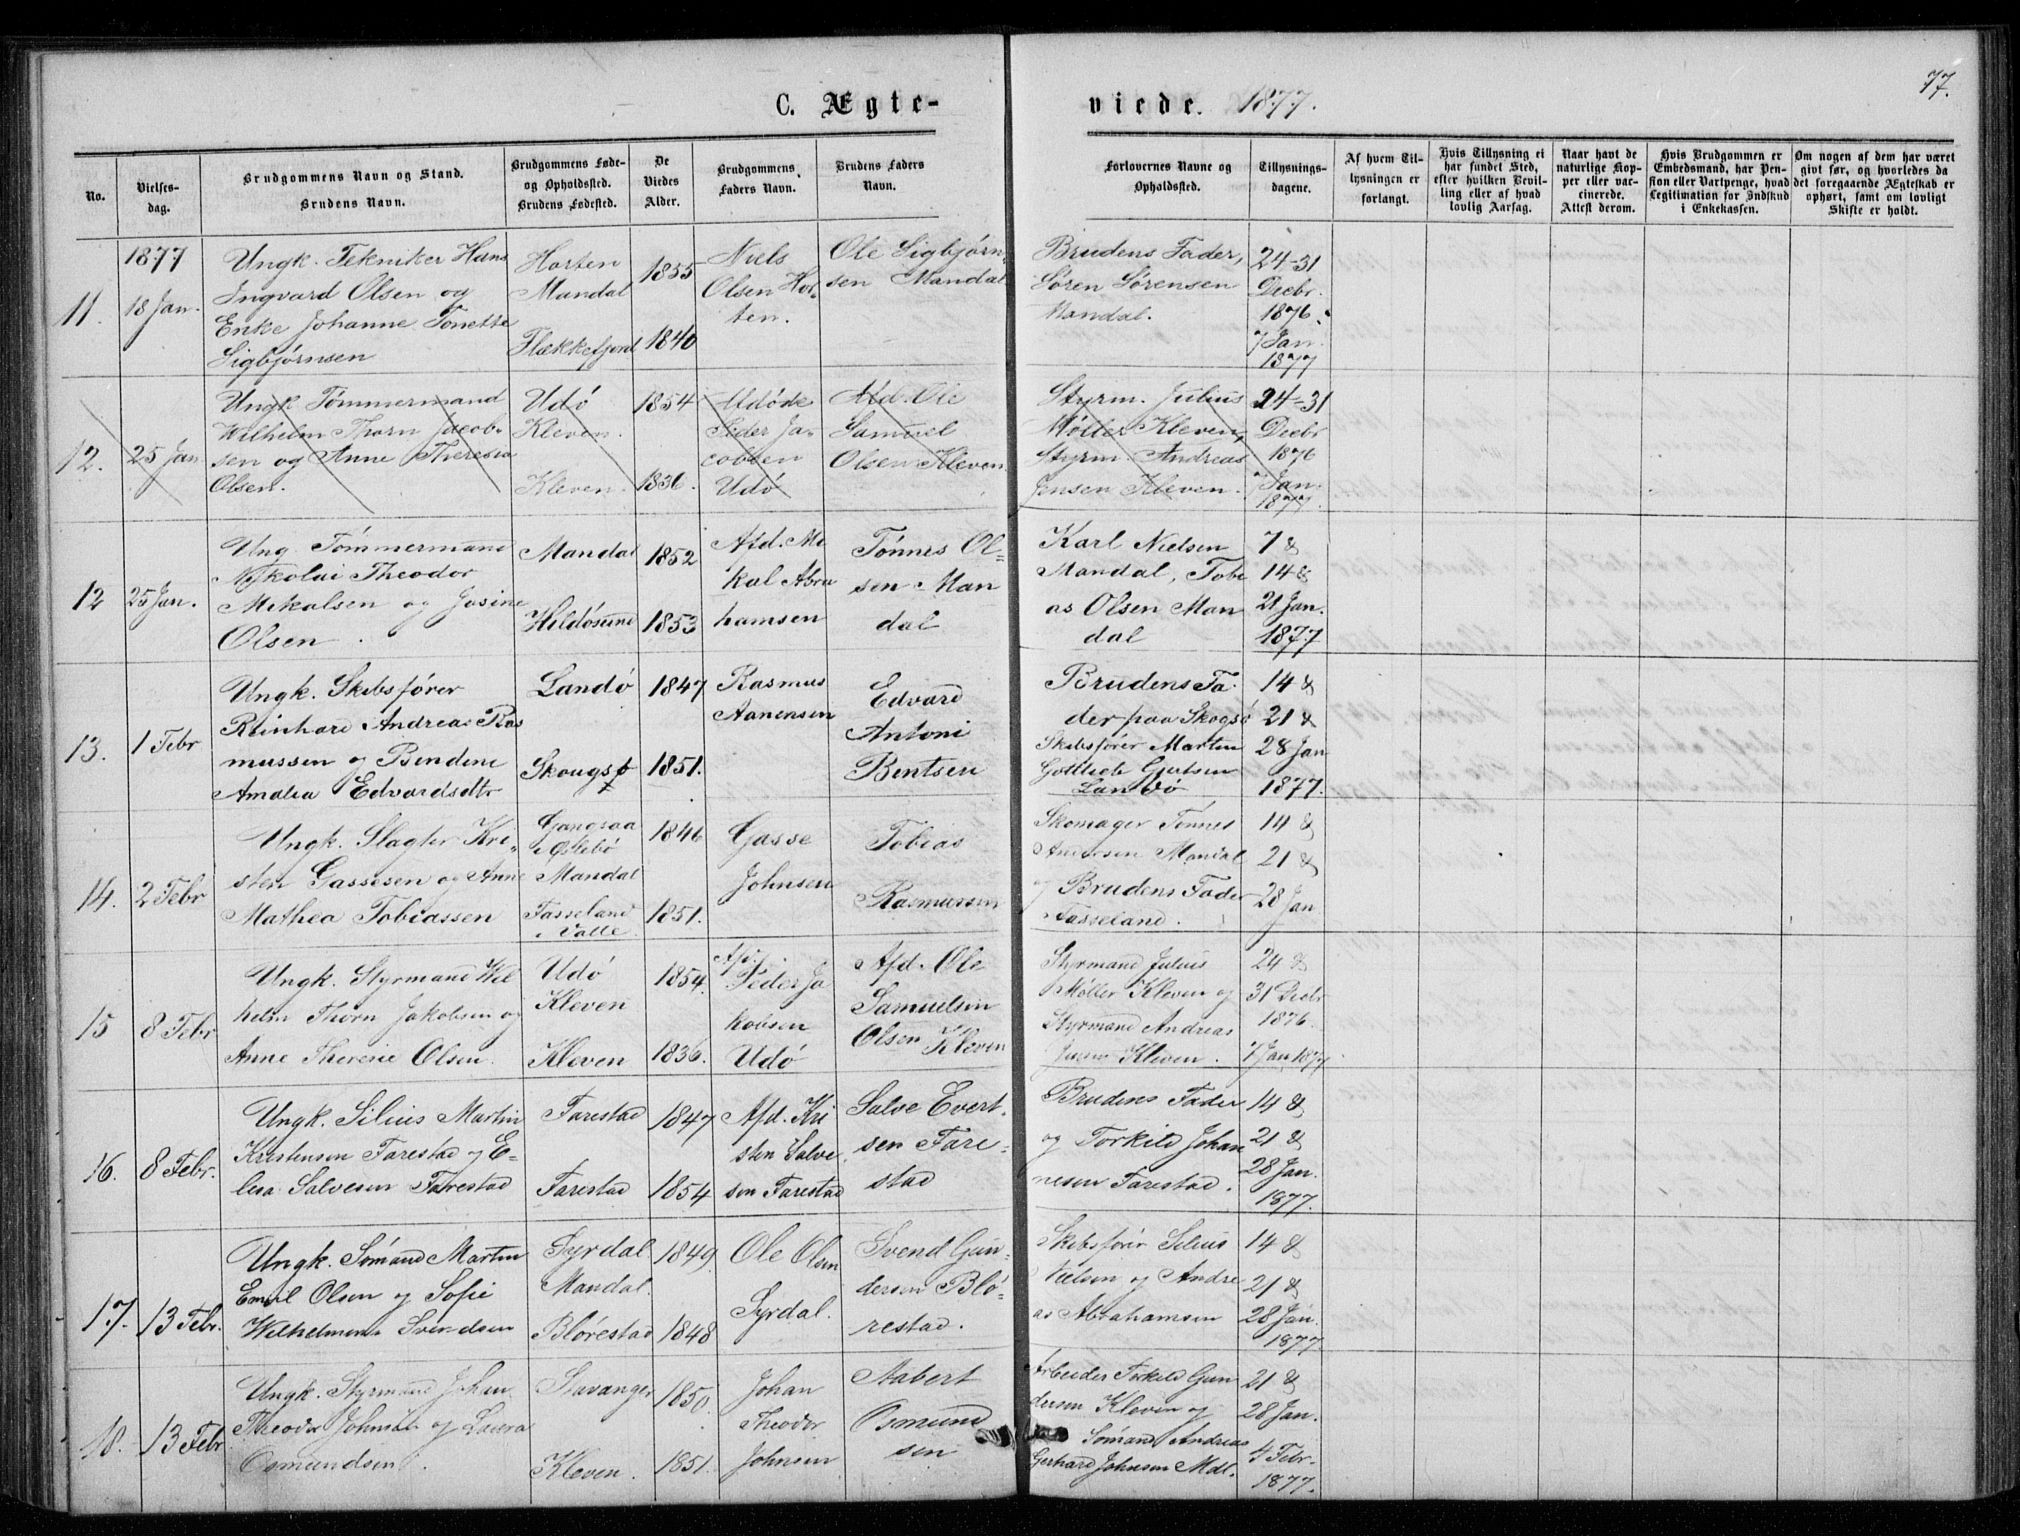 77.
C. Ægte-
viede. 1877.
No.
Vielses-
dag.
Brudgommens Navn og Stand.
Brudens Navn.
Brudgommens Føde-
og Opholdssted.
Brudens Fødested.
De
Viedes
Alder.
Brudgommens
Faders Navn.
Brudens Faders
Navn.
Forlovernes Navne og
Opholdssted.
Tillysnings-
dagene.
Af hvem Til-
lysningen er
forlangt.
Hvis Tillysning ei
har fundet Sted,
efter hvilken Bevil-
ling eller af hvad
lovlig Aarsag.
Naar havt de
naturlige Kop-
per eller vac-
cinerede.
Attest derom.
Hvis Brudgommen er
Embedsmand, har Pen-
sion eller Vartpenge, hvad
Legitimation for Indskud
i Enkekassen.
Om nogen af dem har været
givt før, og hvorledes da
det foregaaende Ægteskab er
ophørt, samt om lovligt
Skifte er holdt.
11.
1877
18 Jan.
Ungk. Tekniker Hans
Ingvard Olsen og
Enke Johanne Tonette
Sigbjørnsen
Horten
Mandal
Flækkefjord
1855
1840
Niels
Olsen Hor-
ten.
Ole Sigbjørn-
sen Mandal
Brudens Fader,
Søren Sørensen
Mandal.
24-31
Decbr.
1876.
7 Jan.
1877
12.
25 Jan
Ungk. Tømmermand
Wilhelm Thorn Jacob-
sen og Anne Theresia
Olsen.
Udø
Kleven.
Kleven.
1854
1836.
Peder Ja-
cobsen
Udø
Afd. Ole
Samuel
Olsen Kleven.
Styrm. Julius
Møller Kleven,
Styrm. Andreas
Jensen Kleven.
24-31
Decbr
1876
7 Jan.
1877.
12
25 Jan.
Ung. Tømmermand
Nikolai Theodor
Mekalsen og Josine
Olsen.
Mandal
Hildøsund
1852
1853
Afd. Mi
kal Abra
hamsen
Tønnes Ol-
sen Man
dal
Karl Nielsen
Mandal, Tobi
as Olsen Man
dal
7 &
14 &
21 Jan.
1877
13.
1 Febr
Ungk. Skibsfører
Reinhard Andreas Ras
mussen og Bendine
Amalia Edvardsdtr
Landø
Skougsø
1847
1851.
Rasmus
Aanensen
Edvard
Antoni
Bentsen
Brudens Fa-
der paa Skogsø
Skibsfører Martin
Gottlieb Gjertsen
Landø
14 &
21 &
28 Jan
1877.
14.
2 Febr
Ungk. Slagter Kri-
sten Gassesen og Anne
Mathea Tobiassen
Gangsaa
i Øslebø
Mandal
Fasseland
i Valle.
1846
1851.
Gasse
Johnsen
Tobias
Rasmussen
Skomager Tønnes
Andersen Mandal
og Brudens Fader
Fasseland.
14 &
21 &
28 Jan
15
8 Febr
Ungk. Styrmand Wil
helm Thorn Jakobsen og
Anne Therecie Olsen.
Udø
Kleven
Kleven
1854.
1836.
Afd.
Peder Ja
kobsen
Udø
Afd. Ole
Samuelsen
Olsen Kleven
Styrmand Julius
Møller Kleven og
Styrmand Andreas
Jensen Kleven.
24 &
31 Decbr
1876.
7 Jan 1877
16.
8 Febr.
Ungk. Silius Martin
Kristensen Farestad og E-
lesa Salvesen Farestad
Farestad
Farestad
1847
1854
Afd. Kri
sten Salve
sen Farestad
Salve Evert-
sen Fare-
stad
Brudens Fader
og Torkild Johan
nesen Farestad.
14 &
21 &
28 Jan.
1877.
17.
13 Febr.
Ungk. Sømand Martin
Emil Olsen og Sofie
Wilhelmine Svendsen
Syrdal
Mandal.
Blørestad
1849.
1848
Ole Olsen
Syrdal.
Svend Gun-
dersen Blø-
restad.
Skibsfører Silius
Nielsen og Andre
as Abrahamsen
14 &
21 &
28 Jan.
1877.
18.
13 Febr
Ungk. Styrmand Johan
Theodor Johnsen og Laura
Osmundsen.
Stavanger
Kleven.
1850.
1851.
Johan
Theodor
Johnsen
Aabert
Osmund
sen
Arbeider Torkild Gun
dersen Kleven og
Sømand Andreas
Gerhard Johnsen Mdl.
21 &
28 Jan.
4 Febr.
1877.